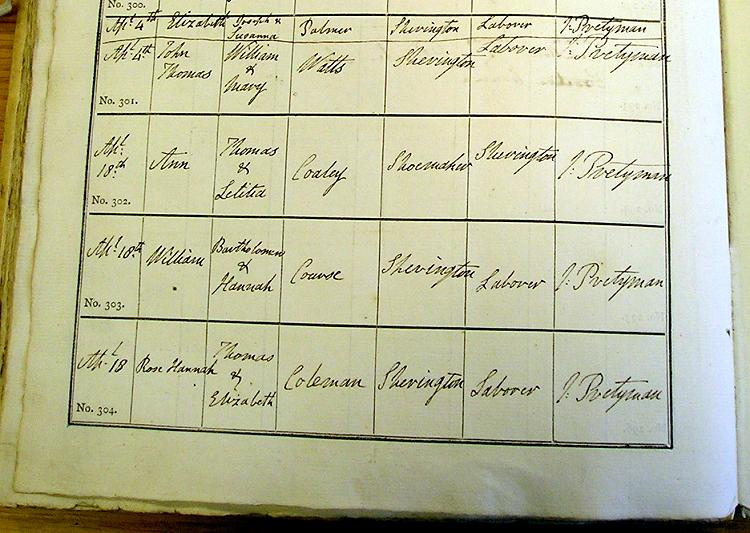 No. 300.
Apl. 4th Elizabeth Joseph & Susanna Palmer Shevington Labover J: Pretyman
Apl. 4th John Thomas William & Mary Watts Shevington Labover J: Pretyman
No. 301.
Apl. 18th Ann Thomas & Letitia Coaley Shoemaker Shevington J: Pretyman
No. 302.
Apl. 18th William Bartholomew & Hannah Course Shevington Labover J: Pretyman
No. 303.
Apl. 18 Rose Hannah Thomas & Elizabeth Coleman Shevington Labover J: Pretyman
No. 304.